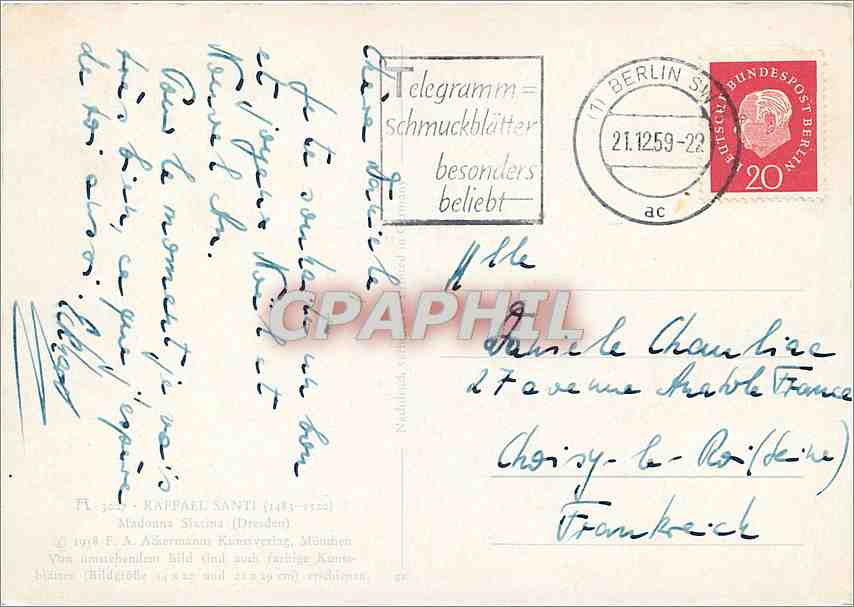 Chère Danièle
Je te souhaite un bon
et joyeux Noël et
Nouvel An.
Pour le moment je vais
très bien, ce que j'espère
de toi aussi.
Telegramm=
schmuckblätter
besonders
beliebt
(1) BERLIN SW
21.12.59-22
ac
DEUTSCHE BUNDESPOST BERLIN
20
Mlle
Daniele Chauliac
27 avenue Anatole France
Choisy-le-Roi (Seine)
Frankreich
CPAPHIL
RAFFAEL SANTI (1483-1520)
Madonna Sixtina (Dresden)
© 1958 F. A. Ackermanns Kunstverlag, München
Von umstehendem Bild sind auch farbige Kunst-
blätter (Bildgröße 14 x 20 und 21 x 29 cm) erschienen.
Nachdruck verboten Printed in Germany